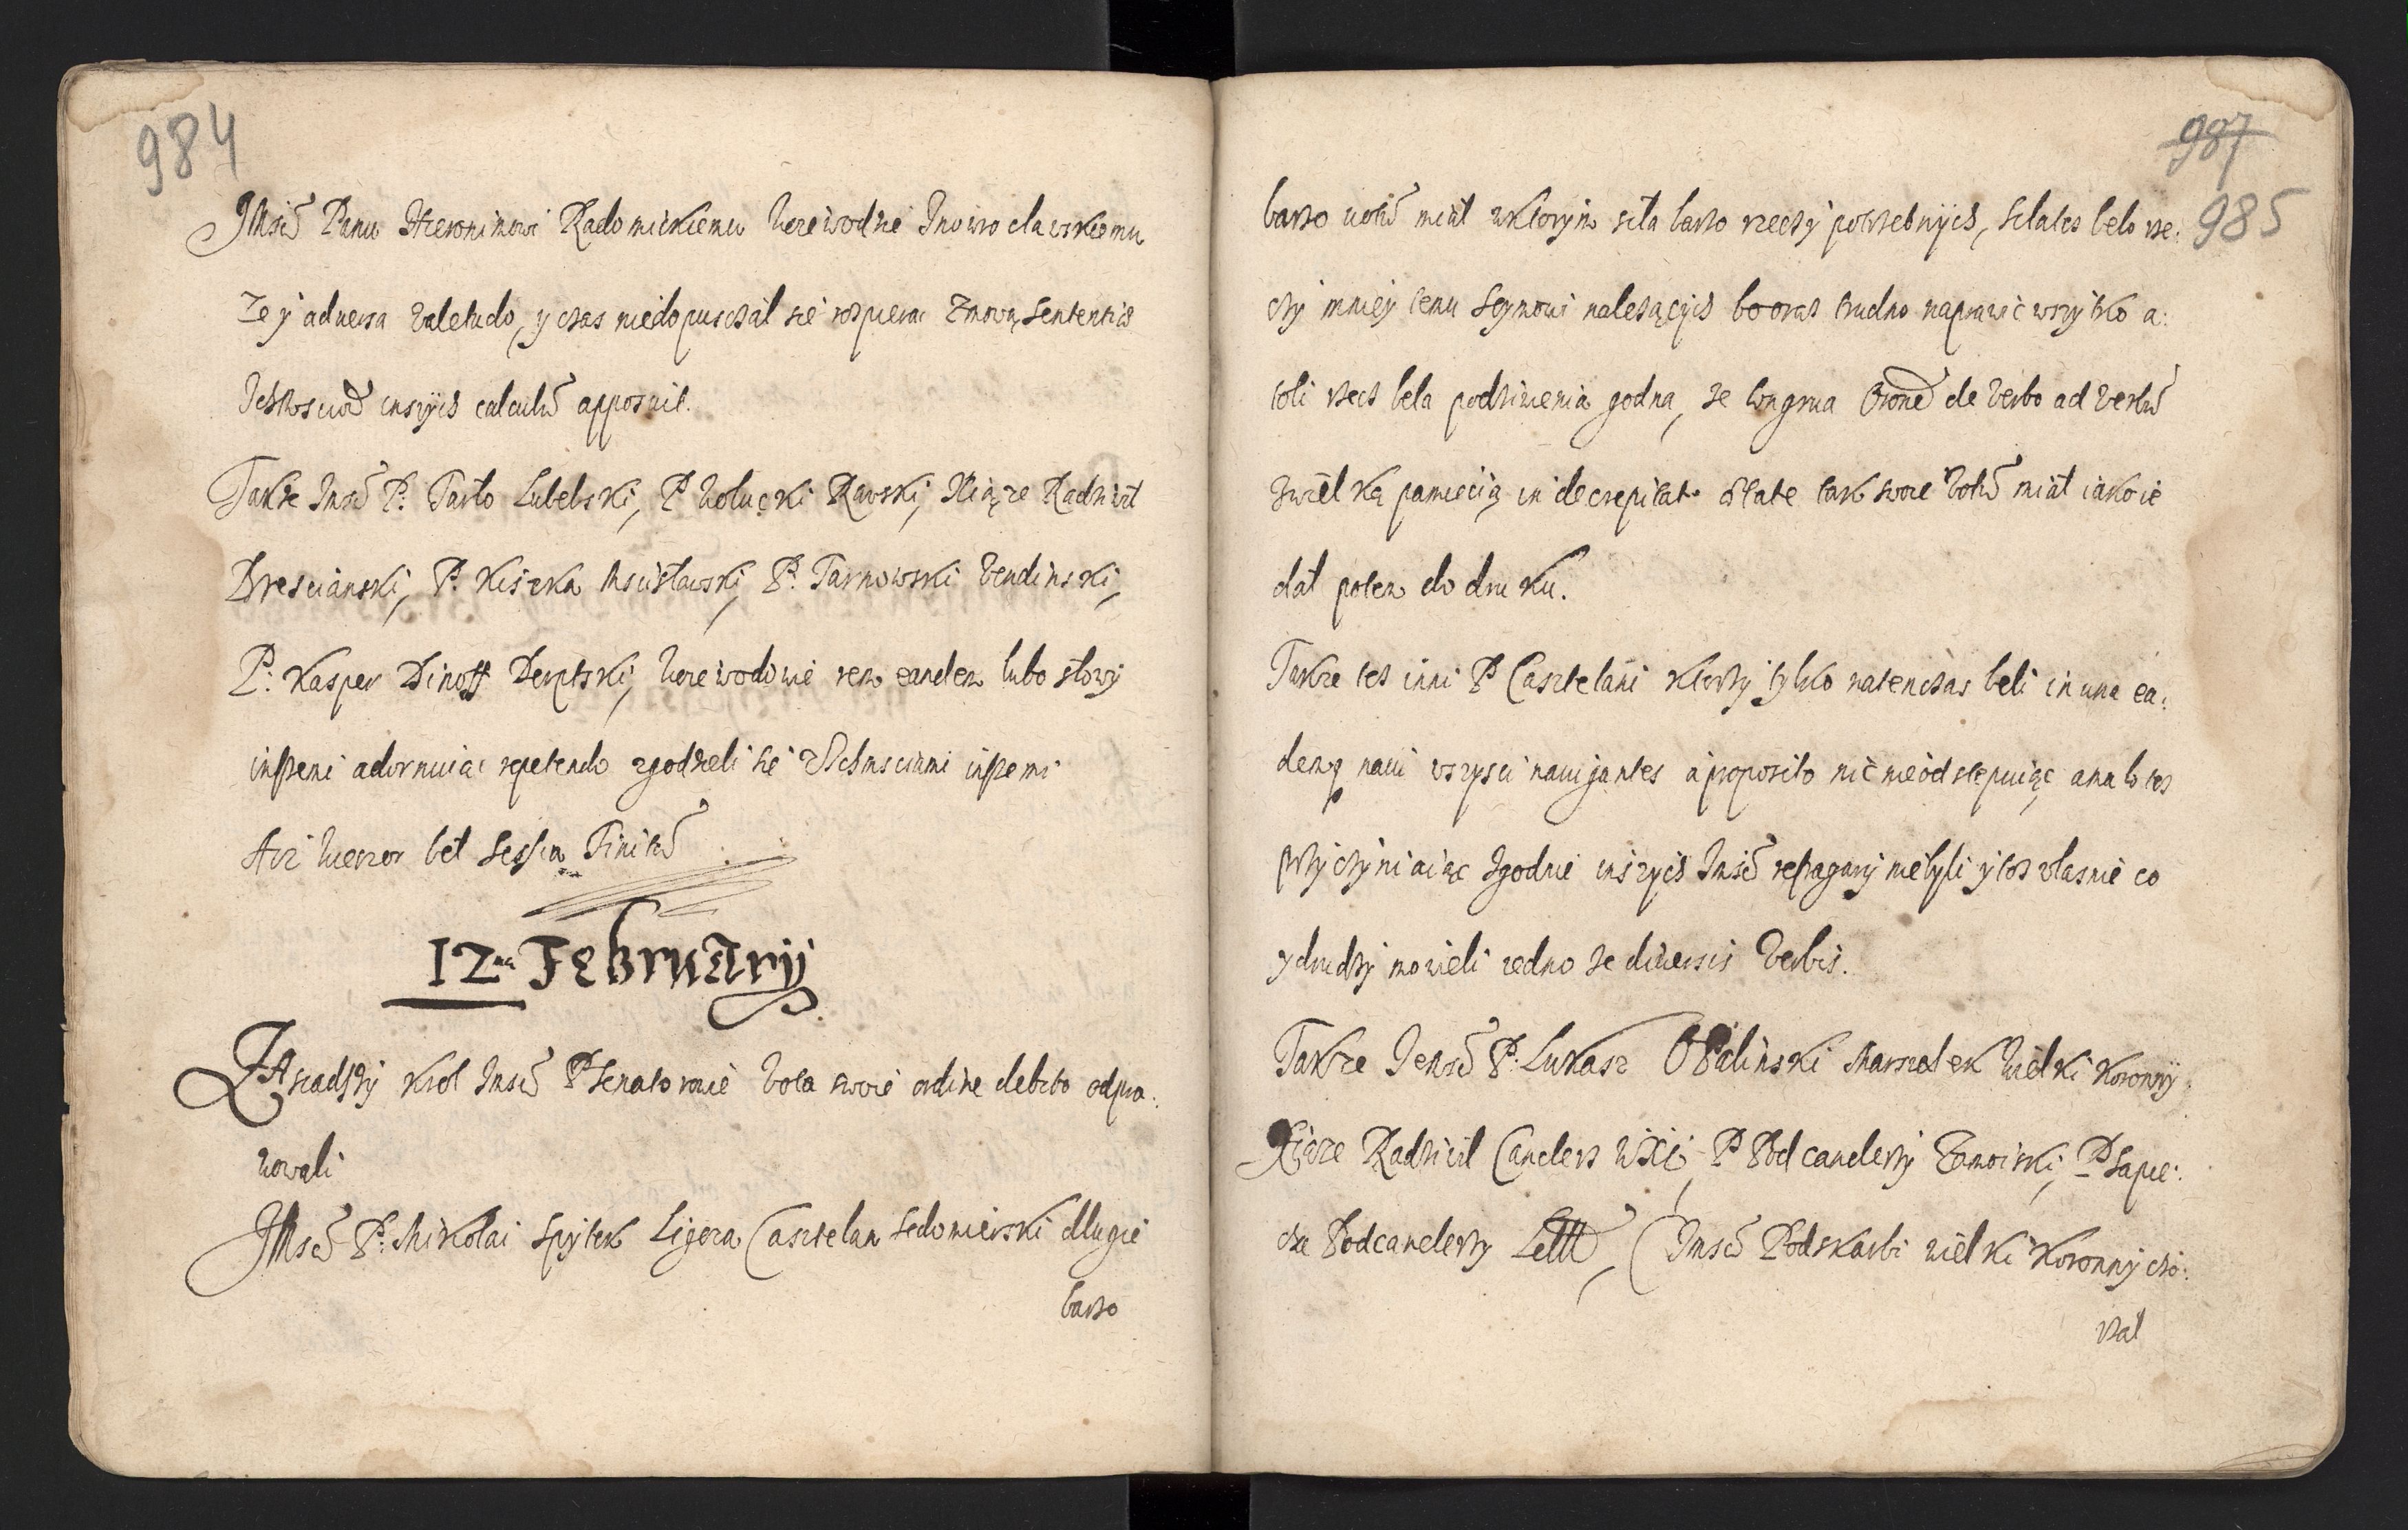 984
JMsci Panu Hieronimowi Radomickiemu Woiewodzie Inowroclawskiemu
Ze y aduersa valetudo, y czas niedopusczał sie rospierac z mową, sententiis
Ichmsciow inszych calculum apposuit.
Także Jmsc P. Tarło Lubelski, P Wołucki Rawski, Xiąże Radziwił
Brescianski, P. Kiszka Mscisławski, P. Tarnowski Vendinski,
P. Kasper Dinoff Derptski, Woiewodowie rem eandem lubo słowy
inszemi adornuiac repetendo zgodzieli sie z Ichmsciami inszemi
Asz wieczor beł sessiey Finitum
12na Februarij
Zasiadszy Krol Jmsc PP Senatorowie Vota swoie ordine debito odpra:
wowali
JMsc P. Mikołai Spytek Ligeza Casztelan Sedomierski długie
barzo
987
985
barzo votum miał w ktorym siła barzo rzeczy potrzebnych, siła tes beło rze:
czy mniey temu Seymowi należących bo oraz trudno naprawić wszytko a:
toli rzecz beła podziwienia godna, ze congrua Orone de verbo ad verbum
z wielką pamiecią in decrepita ætate tak swoie votum miał iako ie
dał potem do druku.
Także tes inni P Casztelani ktorzy tylko natenczas beli in una ea:
demq navi wszysci navigantes a proposito nic nie odstepuiąc ana to tes
przyczyniaiąc zgodnie inszych Jmsc repagary nie byli y tos własnie co
y drudzy mowieli iedno ze diuersis verbis.
Także Jemsc P. Lukasz Opalinski Marszałek Wielki Koronny,
Xiąze Radziwił Canclerz WXL, P Podcanclerzy Zamoiski, P Sapie:
cha Podcanclerzy Litt, Jmsc Podskarbi wielki Koronny cho:
rzał